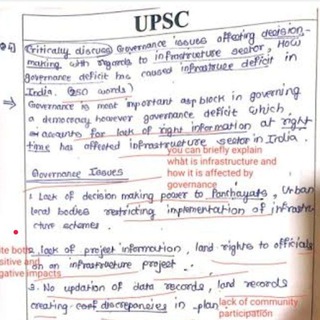 UPSC
Q4) Critically discuss Governance issues affecting decision-
making with regards to infrastructure sector, How
governance deficit has caused infrastruture deficit in
India. (250 words)
⇒ Governance is most important block in governing
a democracy however governance deficit which,
accounts for lack of right information at right
time has affected infrastructure sector in India.
you can briefly explain
what is infrastructure and
how it is affected by
governance
Governance Issues
1. Lack of decision making power to Panchayats, Urban
local bodies restricting implementation of infrastru-
cture schemes.
te both
sitive and
gative impacts
2. lack of project information, land rights to officials
on an infrastructure project.
3. No updation of data records, land records
creating discrepancies in plan
lack of community
participation